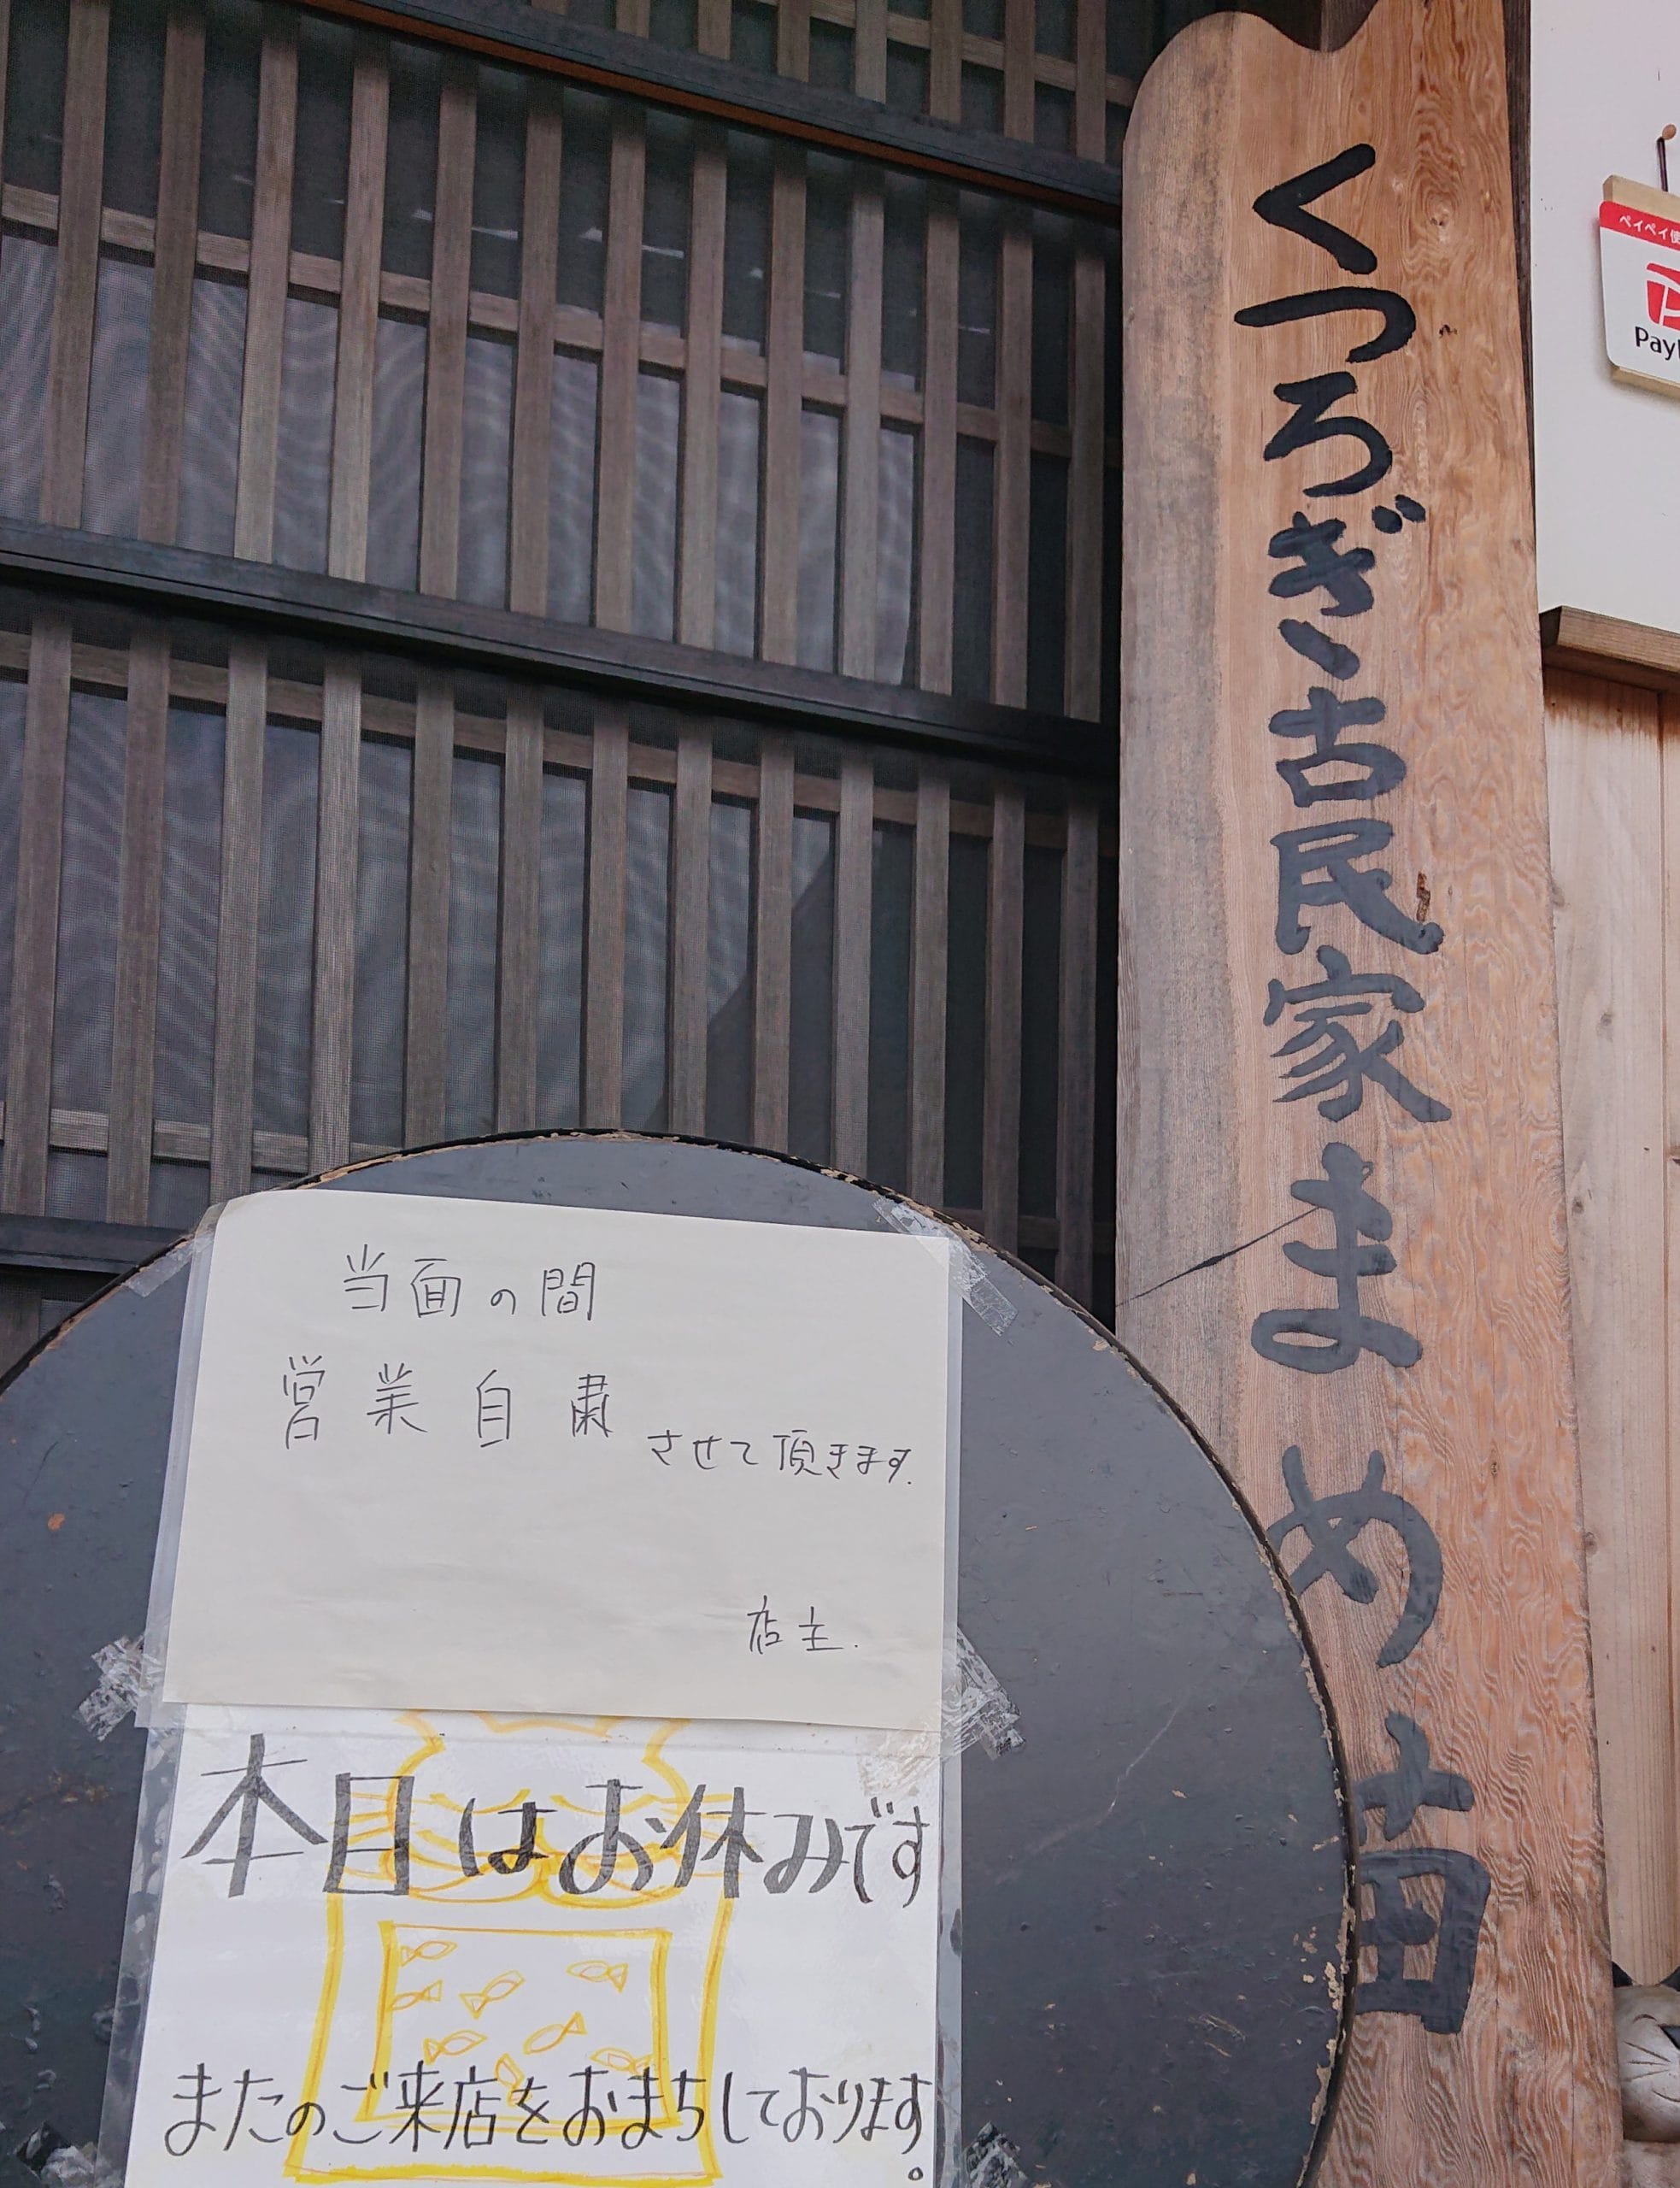 くつろぎ、古民家まめ苗
ペイペイ
Pay
当面の間
営業自粛させて頂きます.
店主.
本日はお休みです
またのご来店をおまちしております。